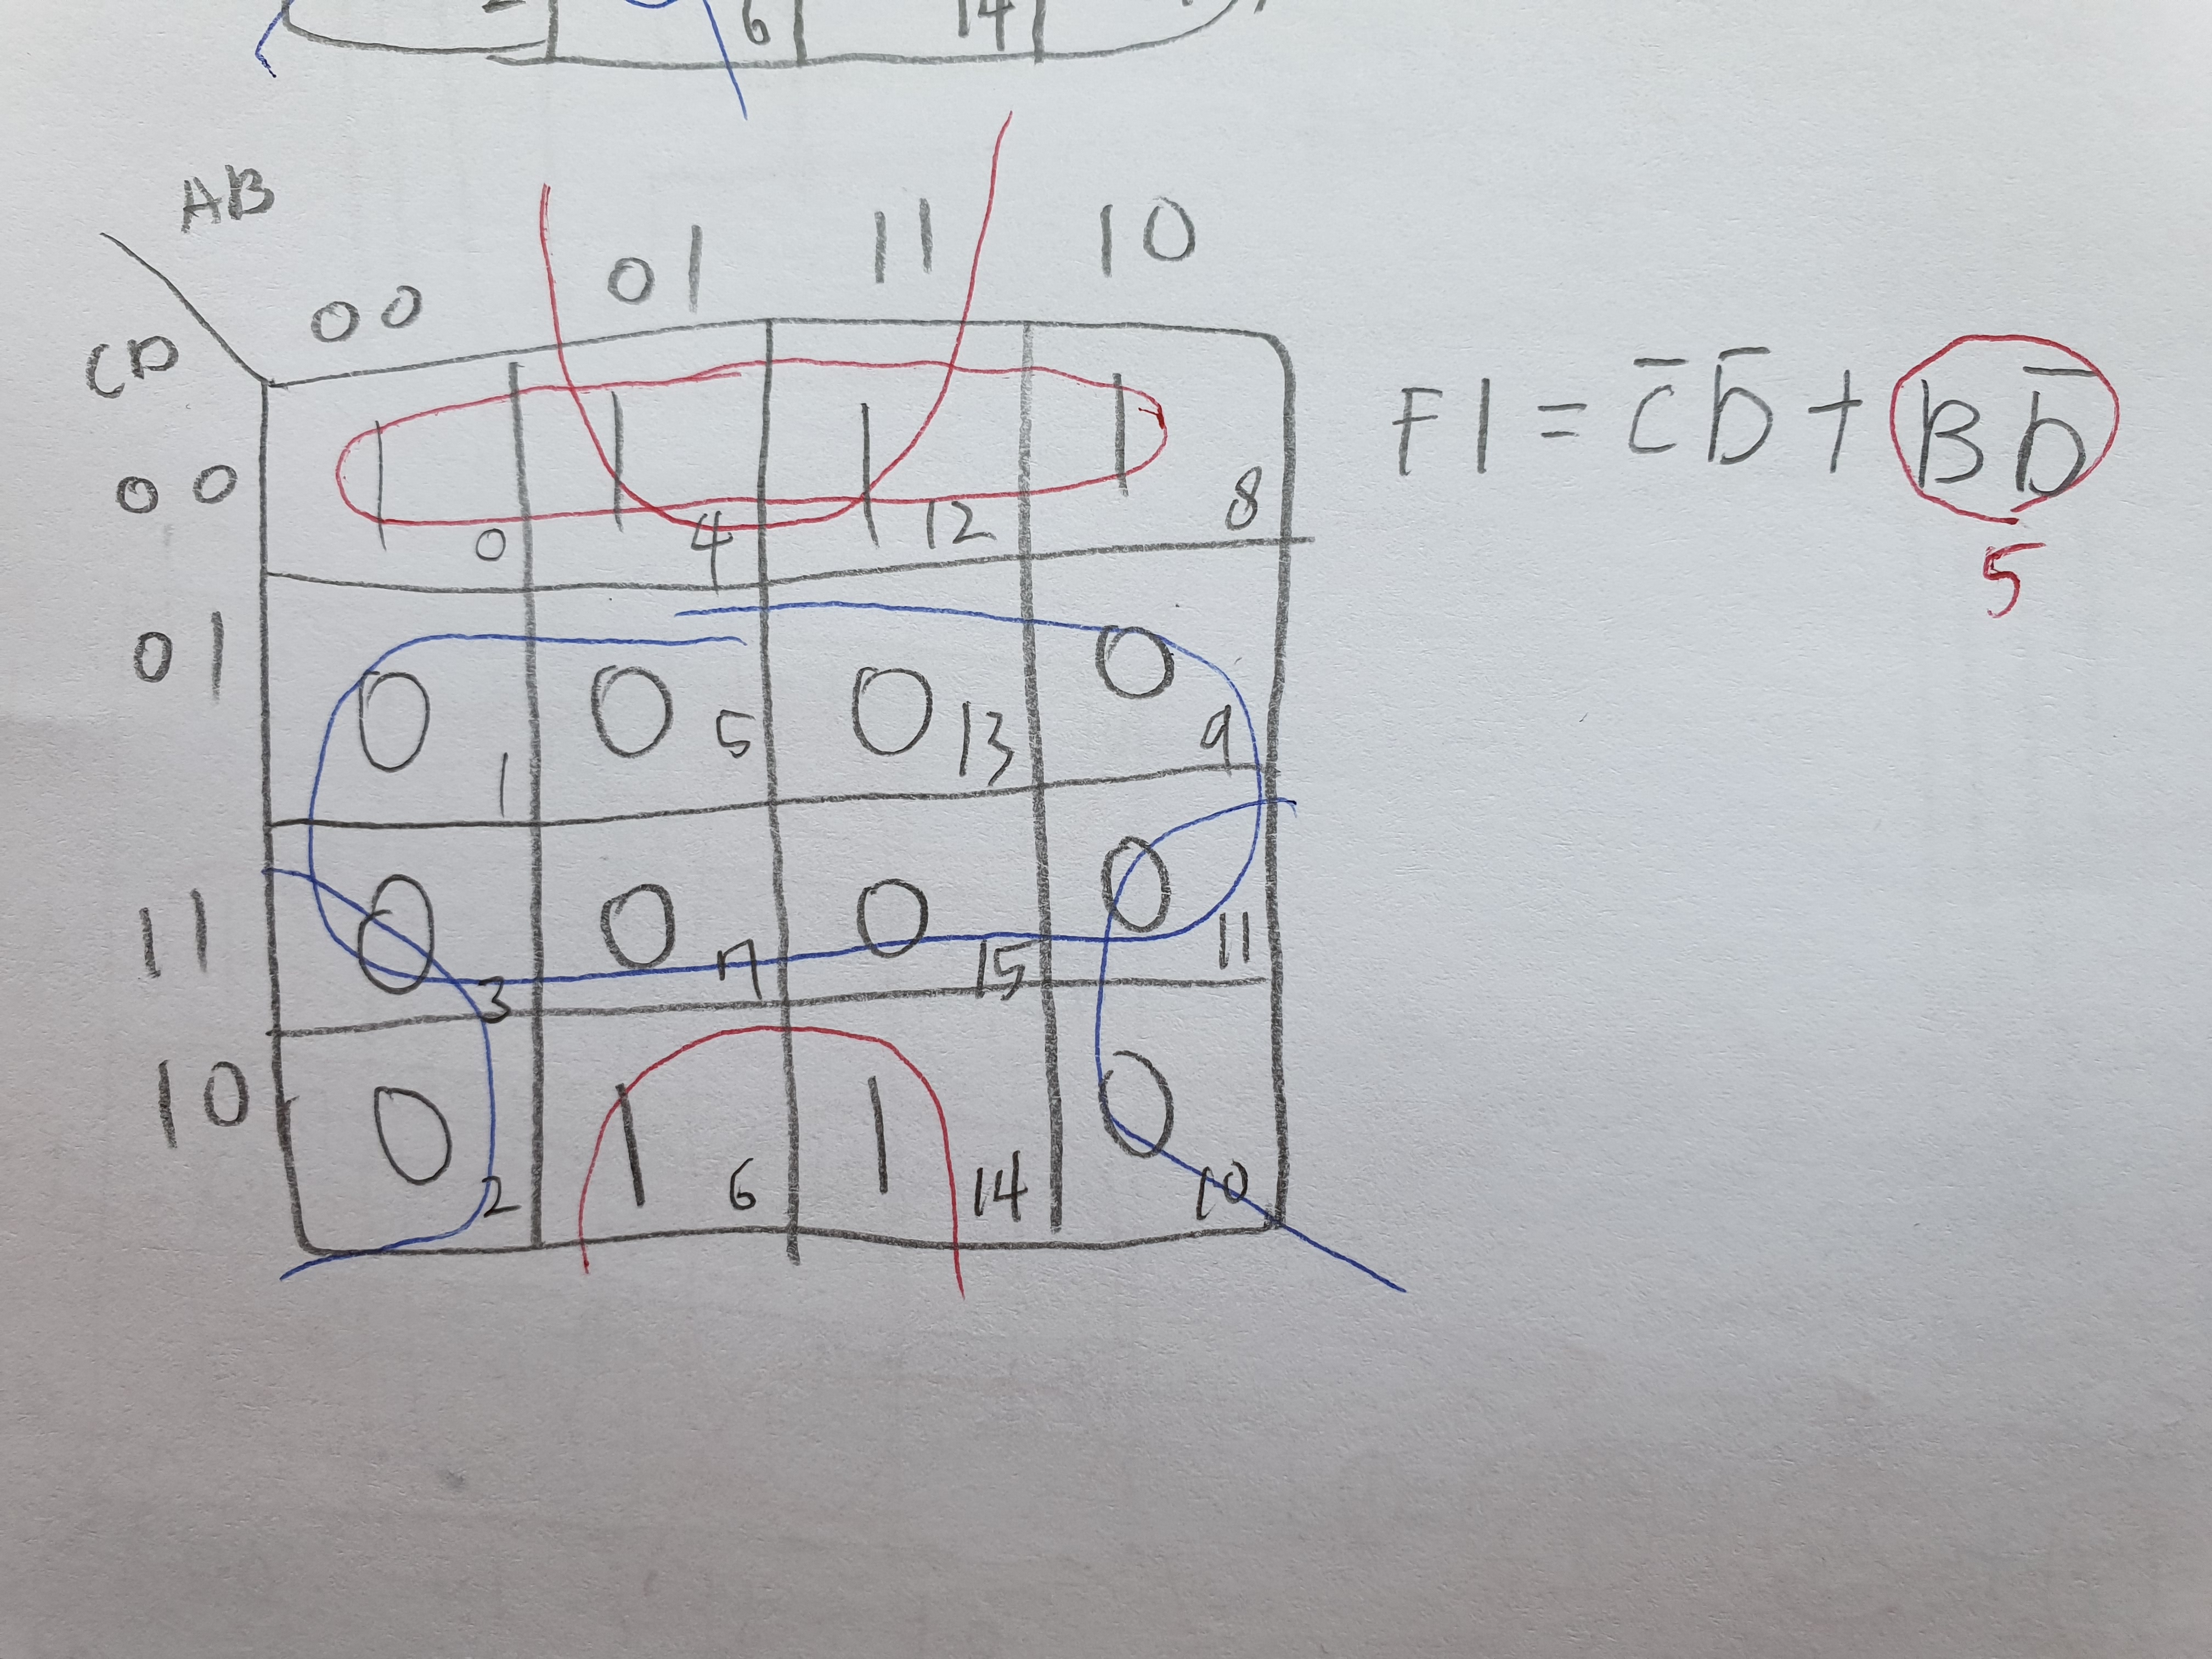 AB
CD
00 01 11 10
00 1 0 1 4 1 12 1 8
01 0 1 0 5 0 13 0 9
11 0 3 0 7 0 15 0 11
10 0 2 1 6 1 14 0 10
F1 = C̅D̅ + BD̅
5
6
14